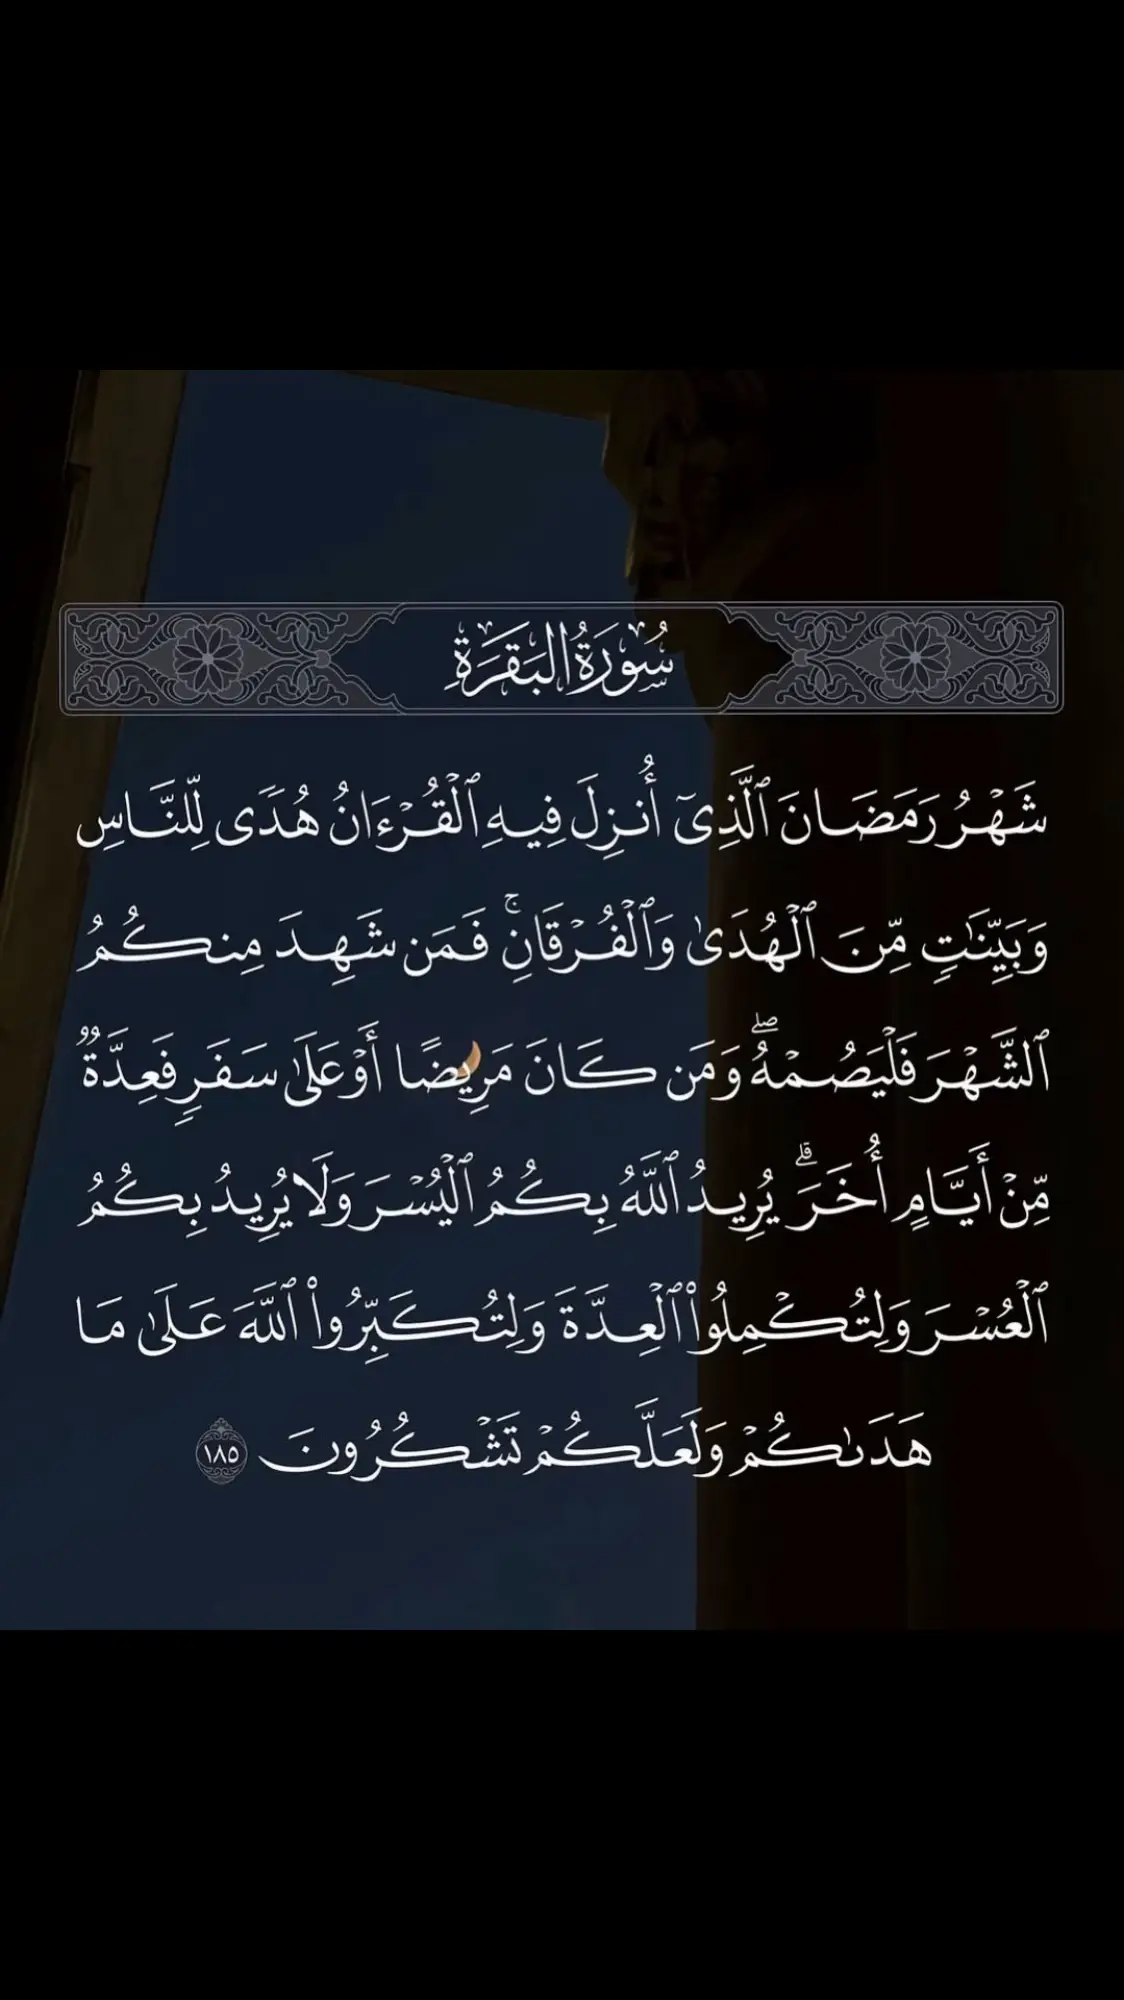 سُورَةُ البَقَرَةِ
شَهْرُ رَمَضَانَ ٱلَّذِىٓ أُنزِلَ فِيهِ ٱلْقُرْءَانُ هُدًى لِّلنَّاسِ
وَبَيِّنَٰتٍ مِّنَ ٱلْهُدَىٰ وَٱلْفُرْقَانِ ۚ فَمَن شَهِدَ مِنكُمُ
ٱلشَّهْرَ فَلْيَصُمْهُ ۖ وَمَن كَانَ مَرِيضًا أَوْ عَلَىٰ سَفَرٍ فَعِدَّةٌ
مِّنْ أَيَّامٍ أُخَرَ ۗ يُرِيدُ ٱللَّهُ بِكُمُ ٱلْيُسْرَ وَلَا يُرِيدُ بِكُمُ
ٱلْعُسْرَ وَلِتُكْمِلُوا۟ ٱلْعِدَّةَ وَلِتُكَبِّرُوا۟ ٱللَّهَ عَلَىٰ مَا
هَدَىٰكُمْ وَلَعَلَّكُمْ تَشْكُرُونَ ١٨٥